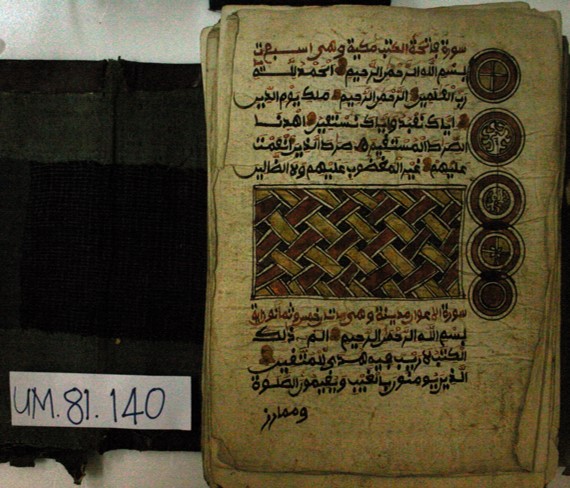 سورة فاتحة الكتب مكية وهى
بسم الله الرحمن الرحيم الحمد لله
رب العلمين الرحمن الرحيم ملك يوم الدين
اياك نعبد واياك نستعين اهدنا
الصرط المستقيم صرط الذين انعمت
عليهم غير المغضوب عليهم ولا الضالين
سورة مدينة وهى
بسم الله الرحمن الرحيم الم ذلك
الكتب لا ريب فيه هدى للمتقين
الذين يومنون بالغيب ويقيمون الصلوة
ومما رز
UM.81.140